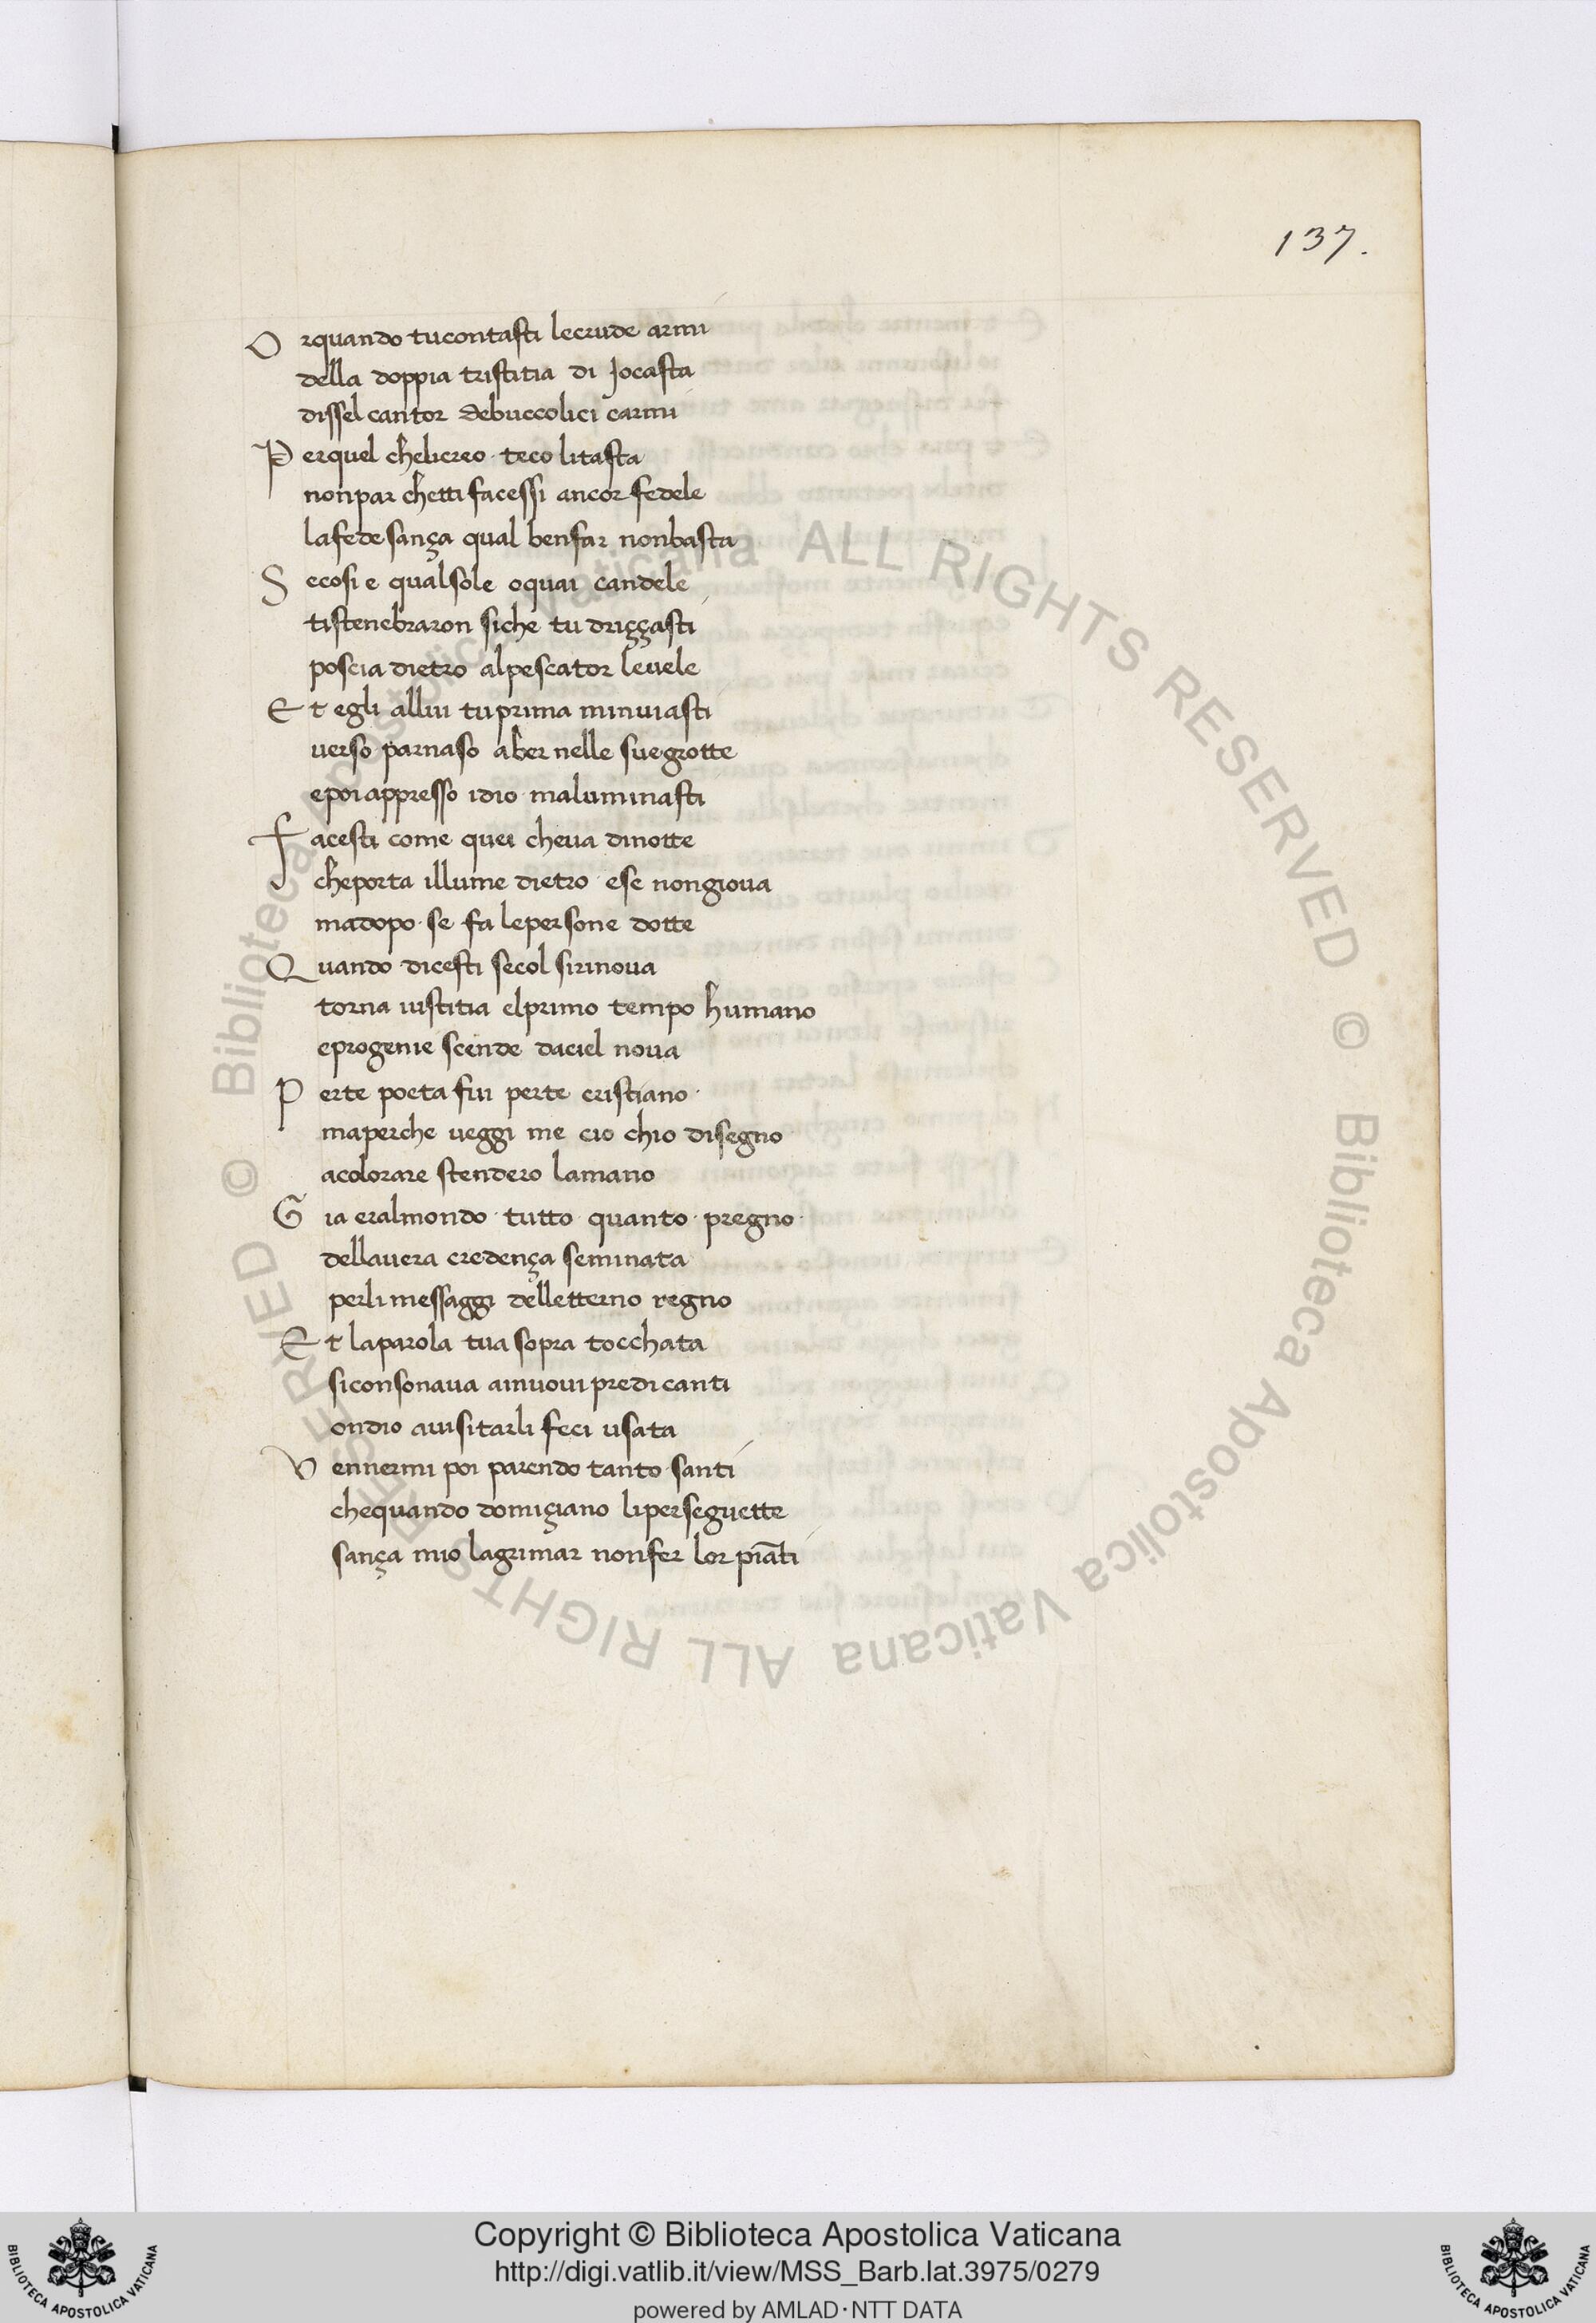 137.
O rquando tucontasti lecrude armi
della doppia tristitia di Jocasta
dissel cantor debuccolici carmi
P erquel chelicreo · teco litasta
nonpar chetti facessi ancor fedele
lafede sança qual benfar nonbasta
S ecosi e qualsole oquai candele
tistenebraron siche tu driççasti
poscia dietro alpescator levele
E t egli allui tuprima minviasti
verso parnaso aber nelle suegrotte
epoi appresso idio maluminasti
F acesti come quei cheva dinotte
cheporta illume dietro ese nongiova
madopo · se fa lepersone dotte
Q uando dicesti secol sirinova
torna iustitia elprimo tempo humano
eprogenie scende daciel nova
P erte poeta fui perte cristiano ·
maperche veggi me cio chio disegno
acolorare stendero lamano
G ia eralmondo · tutto quanto · pregno ·
dellavera credença seminata
perli messaggi delletterno regno
E t laparola tua sopra tocchata
siconsonava ainuovi predicanti
ondio avisitarli feci usata
V ennermi poi parendo tanto · santi
chequando domiçiano liperseguette
sança mio lagrimar nonfer lor pia̅ti
© Biblioteca Apostolica Vaticana ALL RIGHTS RESERVED © Biblioteca Apostolica Vaticana ALL RIGHTS RESERVED
Copyright © Biblioteca Apostolica Vaticana
http://digi.vatlib.it/view/MSS_Barb.lat.3975/0279
powered by AMLAD·NTT DATA
BIBLIOTECA APOSTOLICA VATICANA
BIBLIOTECA APOSTOLICA VATICANA